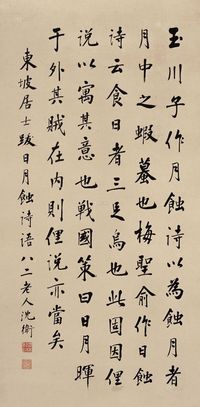 玉川子作月蝕詩以為蝕月者
月中之蝦蟇也梅聖俞作日蝕
詩云食日者三足烏也此固因俚
說以寓其意也戰國策曰日月暉
于外其賊在內則俚說亦當矣
東坡居士跋日月蝕詩語八二老人沈衛